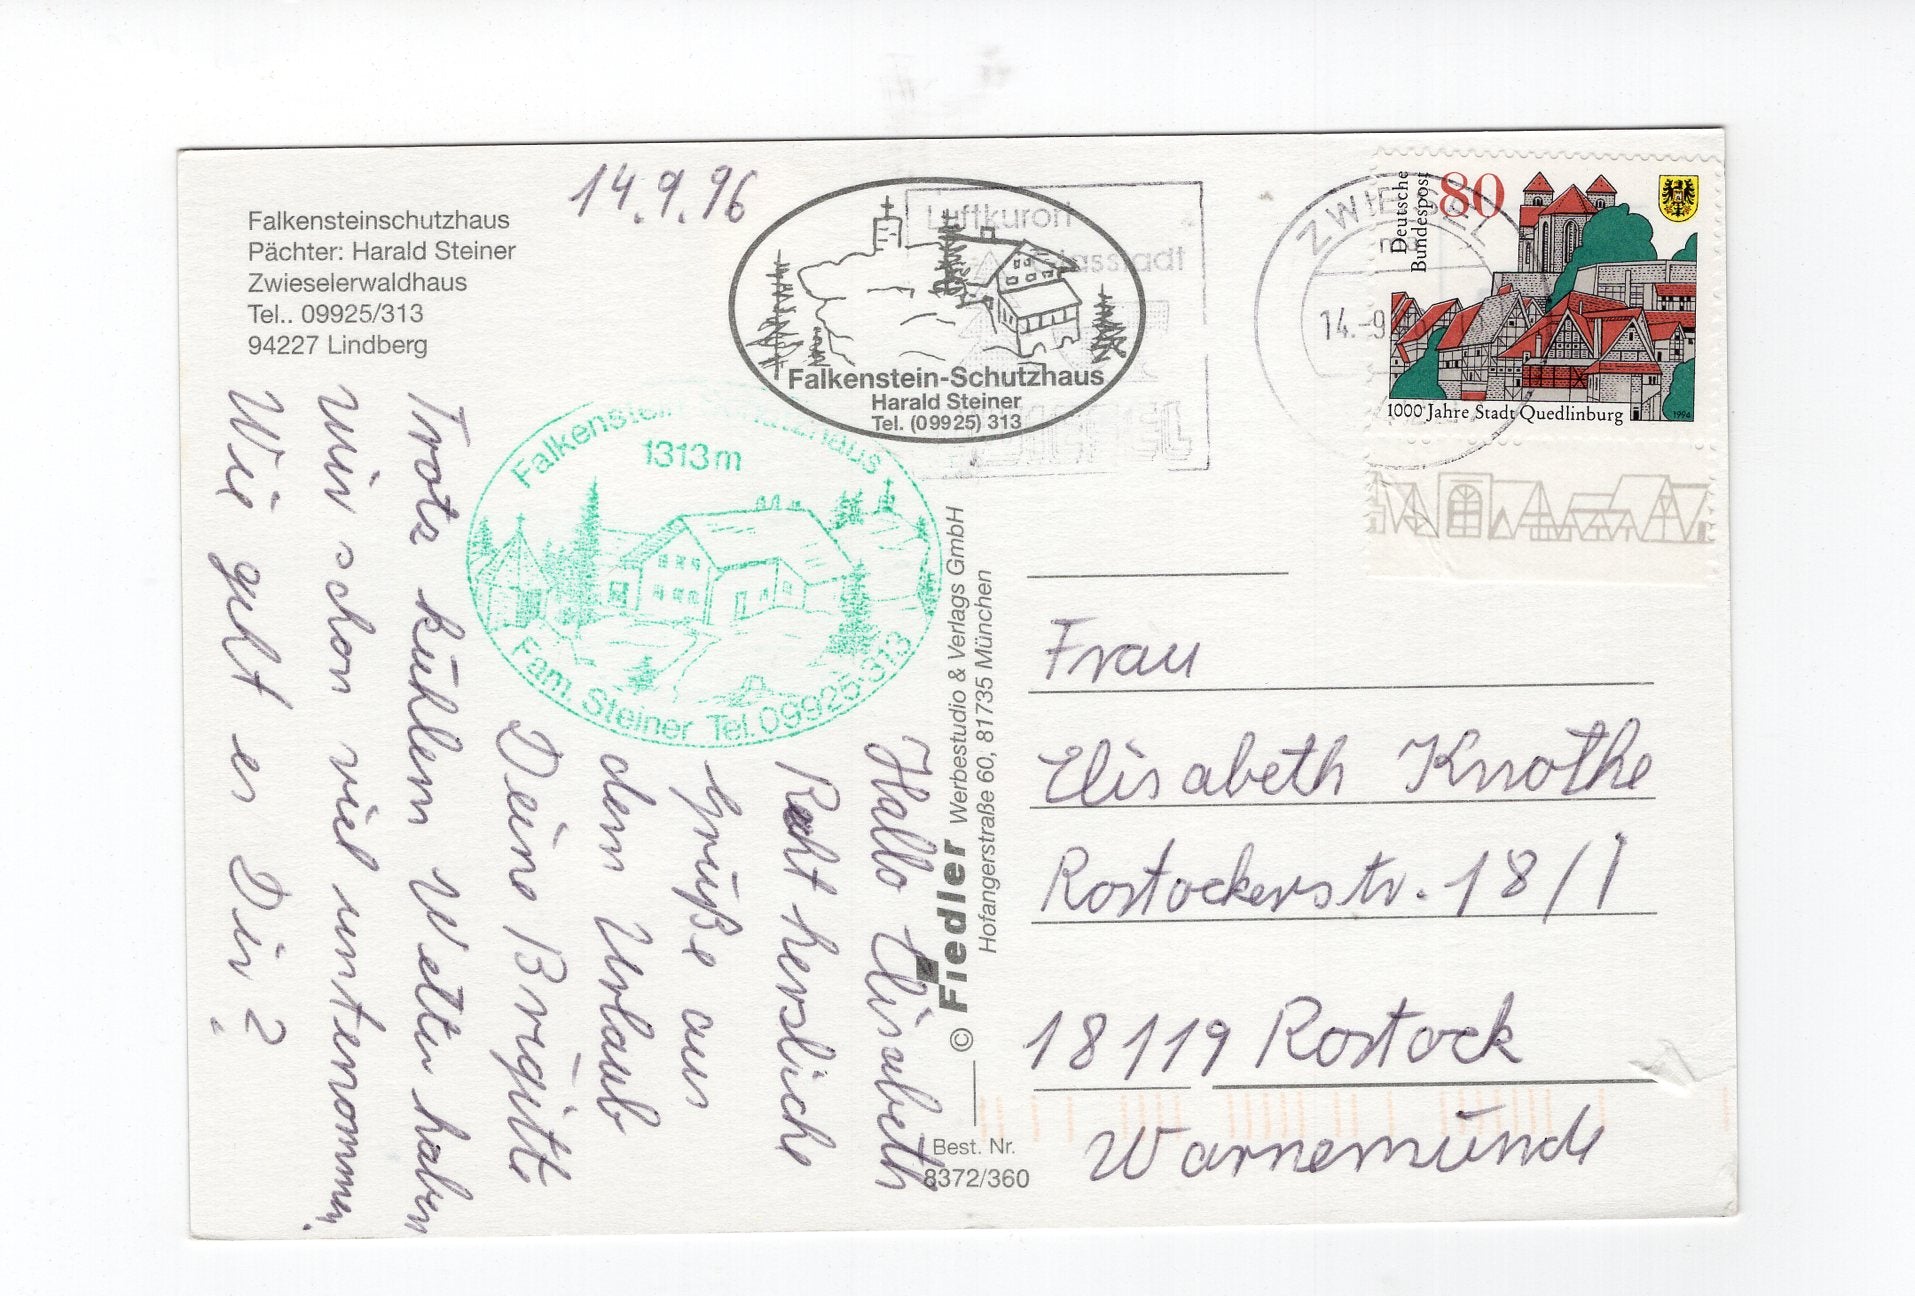 Falkensteinschutzhaus
Pächter: Harald Steiner
Zwieselerwaldhaus
Tel.. 09925/313
94227 Lindberg
14.9.96
Falkenstein-Schutzhaus
Harald Steiner
Tel. (09925) 313
Luftkurort
Glasstadt
ZWIESEL
14.-9
Deutsche
Bundespost
80
1000 Jahre Stadt Quedlinburg
1994
Falkenstein-Schutzhaus
1313m
Fam. Steiner Tel. 09925-313
Hallo Elisabeth
Recht herzliche
Grüße aus
dem Urlaub
Deine Brigitte
Trotz kühlem Wetter haben
wir schon viel unternommen.
Wie geht es Dir?
© Fiedler Werbestudio & Verlags GmbH
Hofangerstraße 60, 81735 München
Best. Nr.
8372/360
Frau
Elisabeth Knothe
Rostockerstr. 18/1
18119 Rostock
Warnemünde